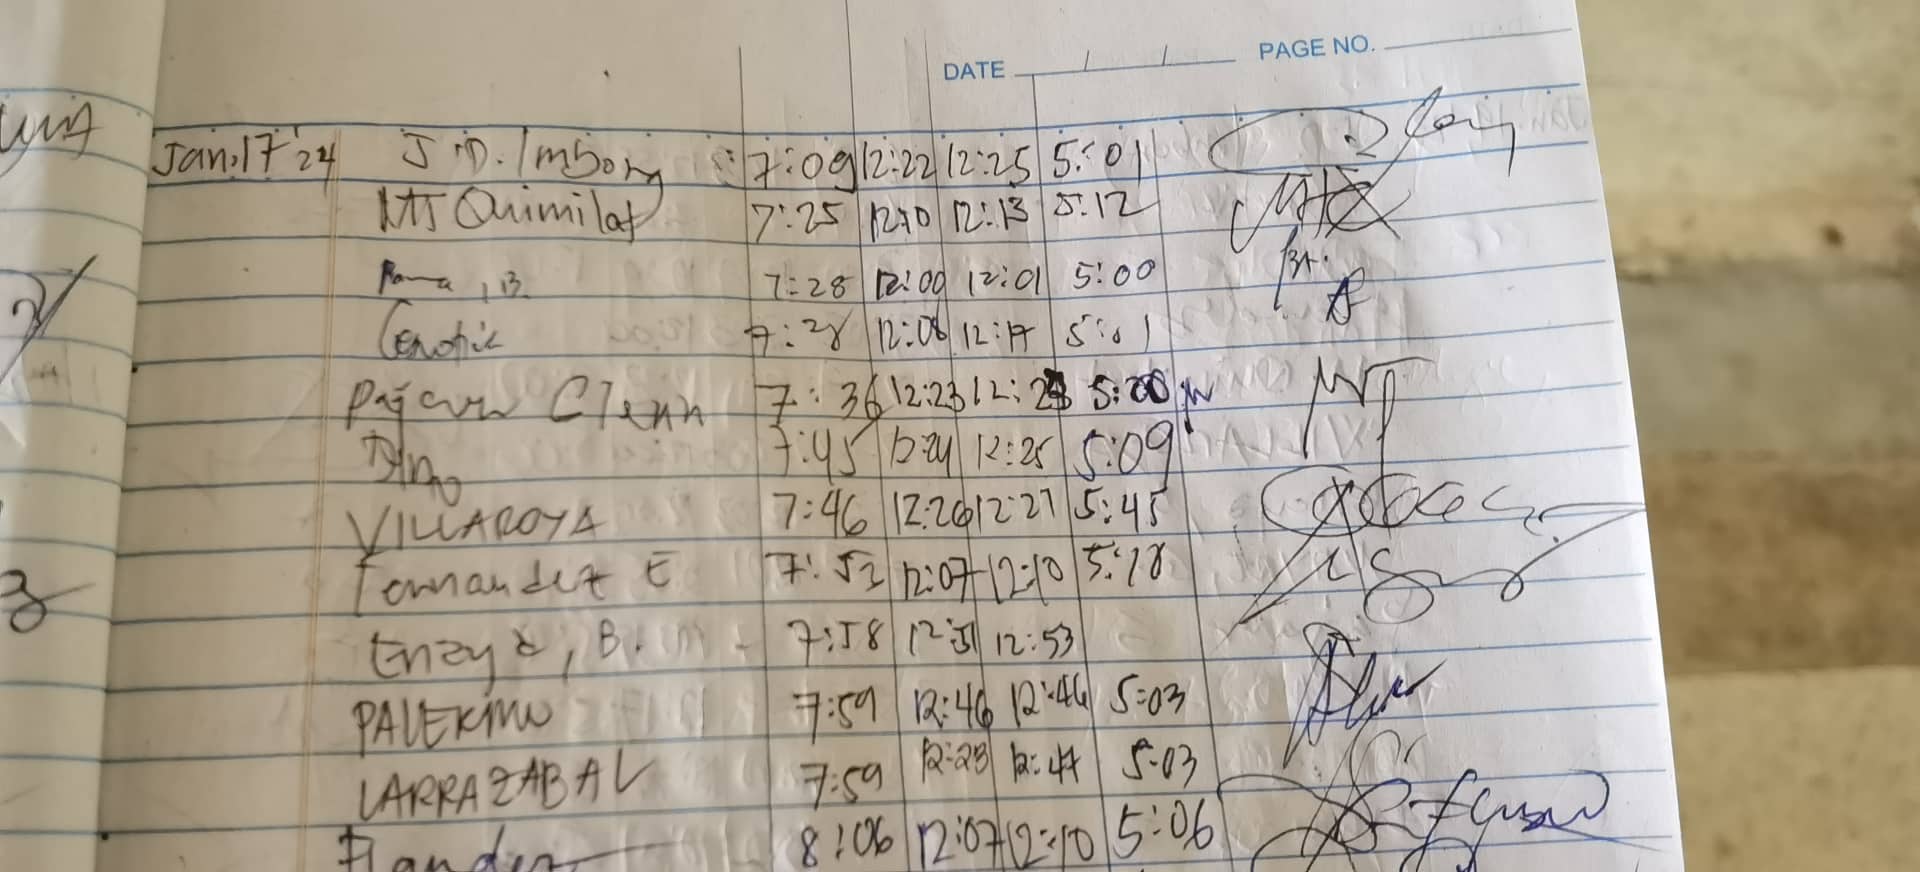 DATE / / PAGE NO.
Jan.17 '24 J.D. Imbong 7:09 12:22 12:25 5:01
MJ Quimilat 7:25 12:10 12:13 5:12
Rama, B. 7:28 12:00 12:01 5:00
7:28 12:06 12:17 5:01
Pajaron Clenn 7:36 12:23 12:25 5:00
7:45 12:24 12:25 5:09
VILLAROYA 7:46 12:26 12:27 5:45
Fernandez E 7:52 12:07 12:10 5:18
B. 7:58 12:51 12:53
PALERMO 7:59 12:46 12:46 5:03
LARRAZABAL 7:59 12:23 12:47 5:03
8:06 12:07 12:10 5:06